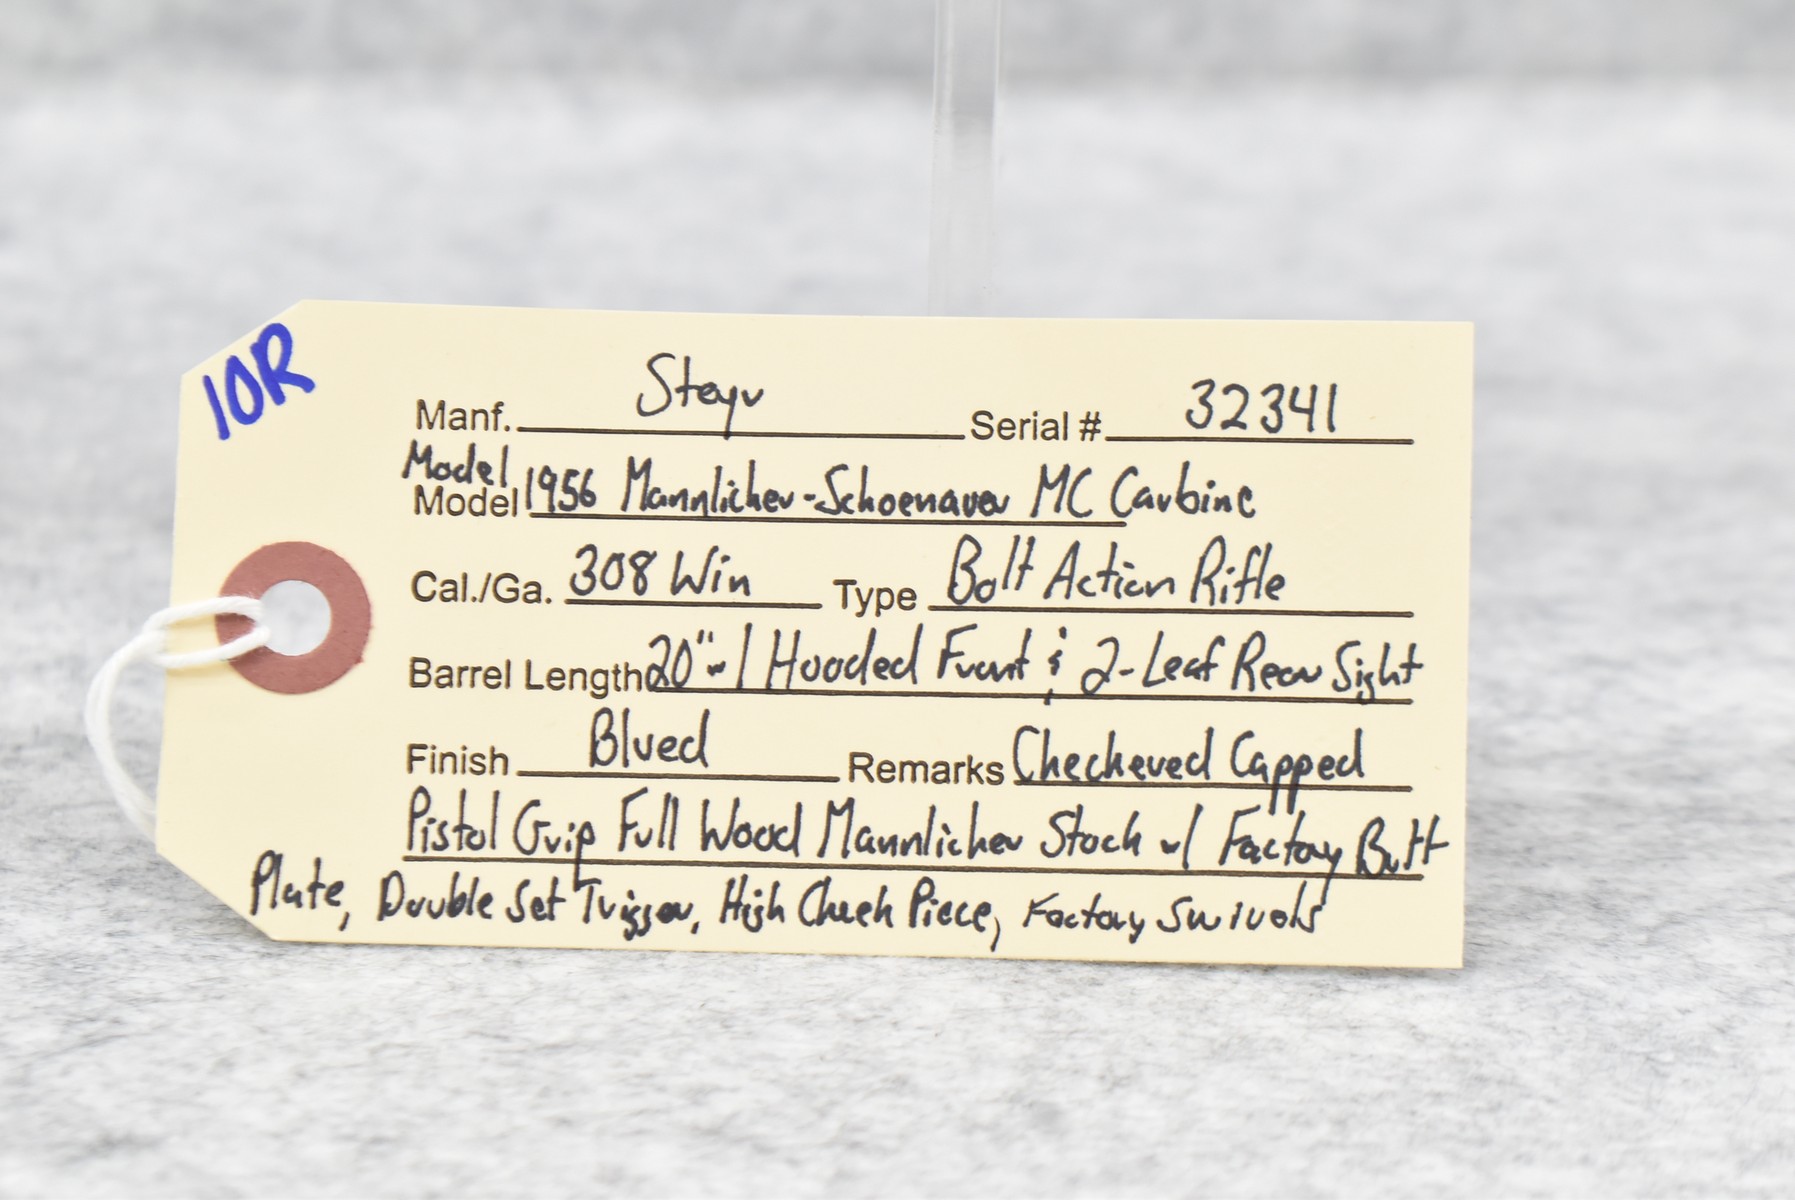 10R
Manf. Steyr Serial # 32341
Model
Model 1956 Mannlicher-Schoenauer MC Carbine
Cal./Ga. 308 Win Type Bolt Action Rifle
Barrel Length 20" w/ Hooded Front & 2-Leaf Rear Sight
Finish Blued Remarks Checkered Capped
Pistol Grip Full Wood Mannlicher Stock w/ Factory Butt
Plate, Double Set Trigger, High Cheek Piece, Factory Swivels